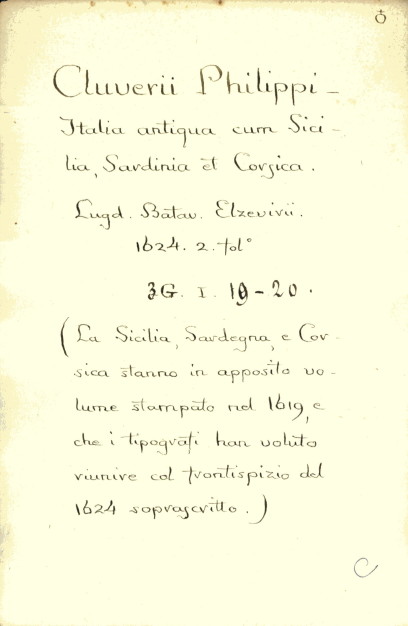 Cluverii Philippi -
Italia antiqua cum Sici -
lia, Sardinia et Corsica.
Lugd. Batav. Elzevirii.
1624. 2. fol°
3G. I. 19-20.
(La Sicilia, Sardegna, e Cor -
sica stanno in apposito vo -
lume stampato nel 1619, e
che i tipografi han voluto
riunire col frontispizio del
1624 soprascritto.)
C